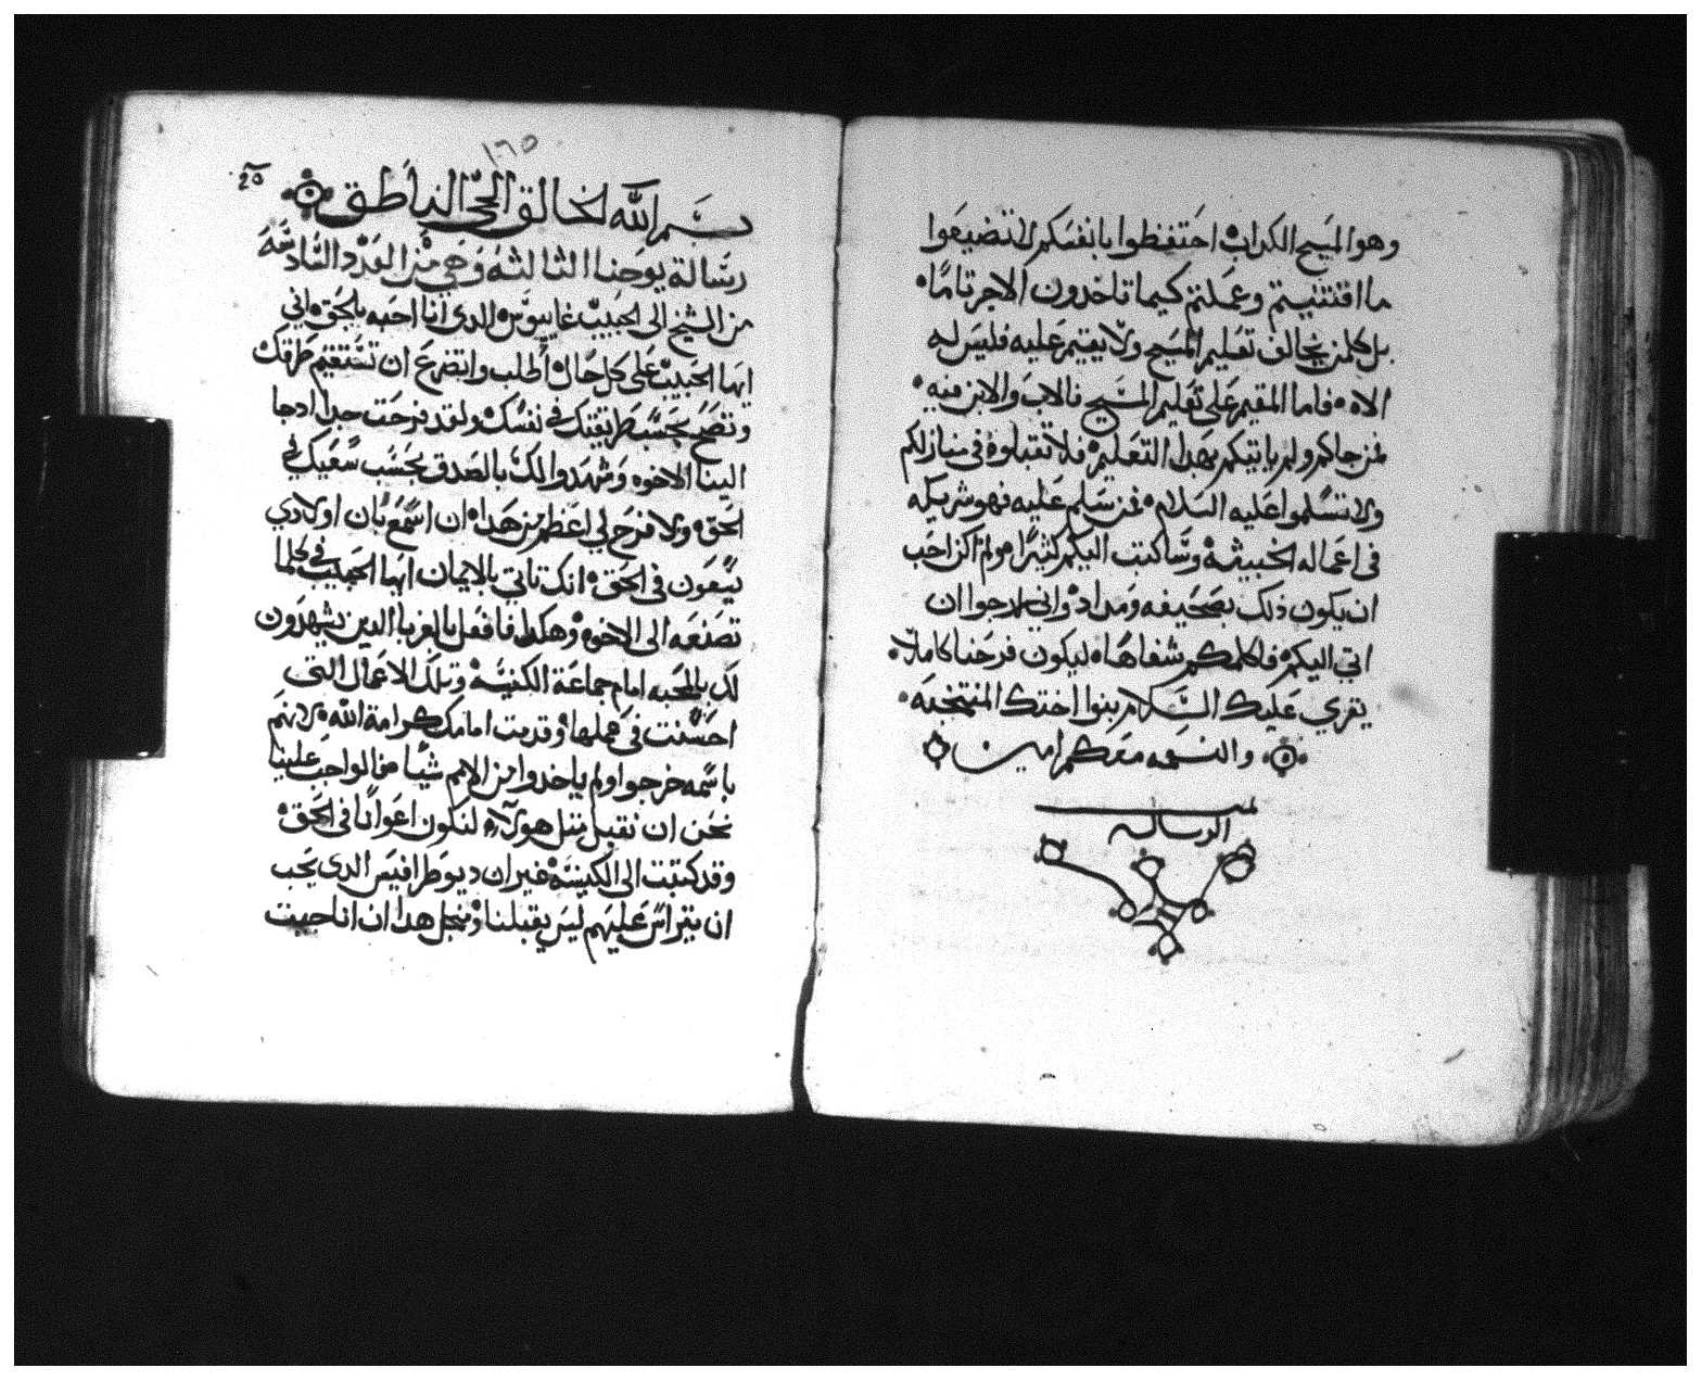 وهو المسيح الكداب احتفظوا بانفسكم لا تضيعوا
ما اقتنيتم وعملتم كيما تاخدون الاجر تامًا
بل كلمن يخالف تعليم المسيح ولا يقيم عليه فليس له
الاه فاما المقيم على تعليم المسيح فالاب والابن فيه
فمن جاكم ولم ياتيكم بهدا التعليم فلا تقبلوه في منازلكم
ولا تسلموا عليه السلام فمن سلم عليه فهو شريكه
في اعماله الخبيثة وساكتب اليكم كثيرًا ولم اكن احب
ان يكون ذلك بصحيفه ومداد واني لارجوا ان
اتي اليكم فاكلمكم شفاهًا ليكون فرحنا كاملًا
يقري عليك السلام بنوا اختك المنتخبه
والنعمه معكم امين
تمت
الرسالة
١٦٥
بسم الله الخالق الحي الناطق
رسالة يوحنا الثالثة وهي من العدد السادسة
من الشيخ الى الحبيب غاييوس الدي انا احبه بالحق اني
ايها الحبيب على كل حال أطلب واتضرع ان تستقيم طرقك
وتصح بحسب طريقتك في نفسك ولقد فرحت جدا ادجا
الينا الاخوه وشهدوا لك بالصدق بحسب سعيك في
الحق ولا فرح لي اعظم من هدا ان اسمع بان اولادي
يسعون في الحق انك تاتي بالايمان ايها الحبيب في كلما
تصنعه الى الاخوه وهكدا فافعل بالغربا الدين يشهدون
لك بالمحبه امام جماعة الكنيسة وتلك الاعمال التي
احسنت في عملها وقدمت امامك كرامة الله لانهم
باسمه خرجوا ولم ياخدوا من الامم شيًا فمالواجب علينا
نحن ان نقبل متل هولاء لنكون اعوانًا في الحق
وقد كتبت الى الكنيسة غير ان ديوطرافيس الدي يحب
ان يتراس عليهم ليس يقبلنا ومنجل هدا ان انا جيت